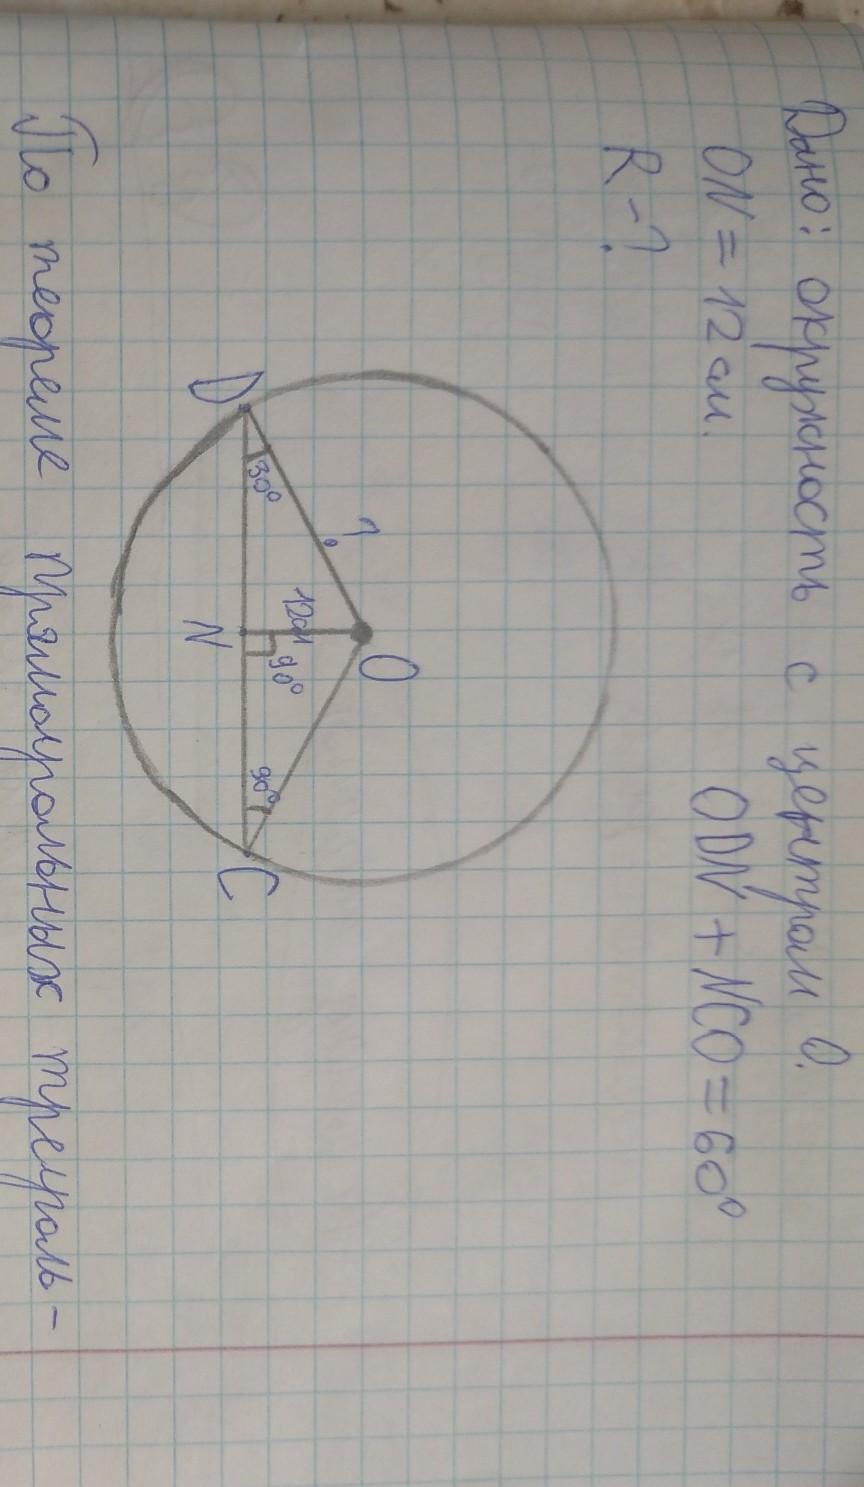 Дано: окружность с центром О.
ON = 12 см. ODN + NCO = 60°
R - ?
O
?
12см
90°
30°
30°
D
N
C
По теореме прямоугольных треуголь-